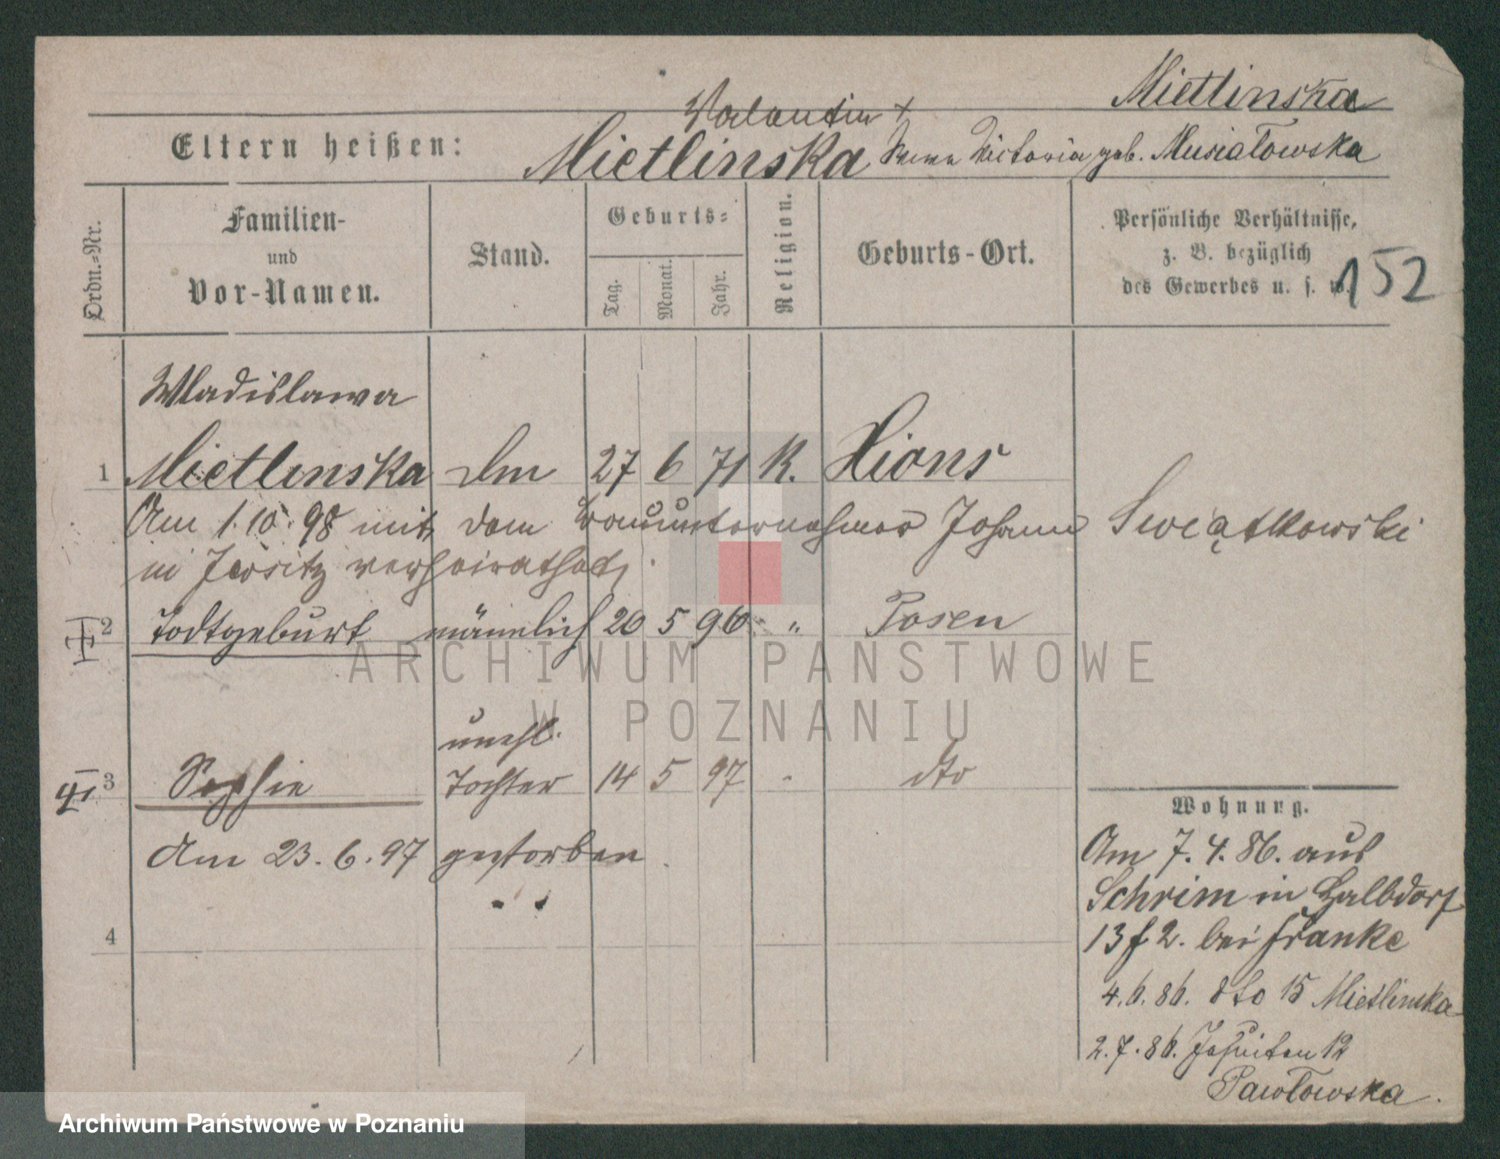 Mietlinska
Valentin +
Eltern heißen: Mietlinska Victoria geb. Musiałowska
Ordn.-Nr.
Familien-
und
Vor-Namen.
Stand.
Geburts-
Tag.
Monat.
Jahr.
Religion.
Geburts-Ort.
Persönliche Verhältnisse,
z. B. bezüglich
des Gewerbes u. s. w.
152
Wladislawa
1 Mietlinska 27 6 71 K. Xions
Am 1.10.98 mit dem Bauunternehmer Johann Swiątkowski
in Jersitz verheirathet.
2 Todtgeburt männlich 20 5 96 " Posen
unehl.
3 Sophie Tochter 14 5 97 dto
Am 23.6.97 gestorben.
4
Wohnung.
Am 7.4.86. aus
Schrim in Halbdorf
13 f 2. bei Franke
4.6.86. dto 15 Mietlinska
2.7.86. Jesuiten 12
Pawłowska.
ARCHIWUM PAŃSTWOWE
W POZNANIU
Archiwum Państwowe w Poznaniu